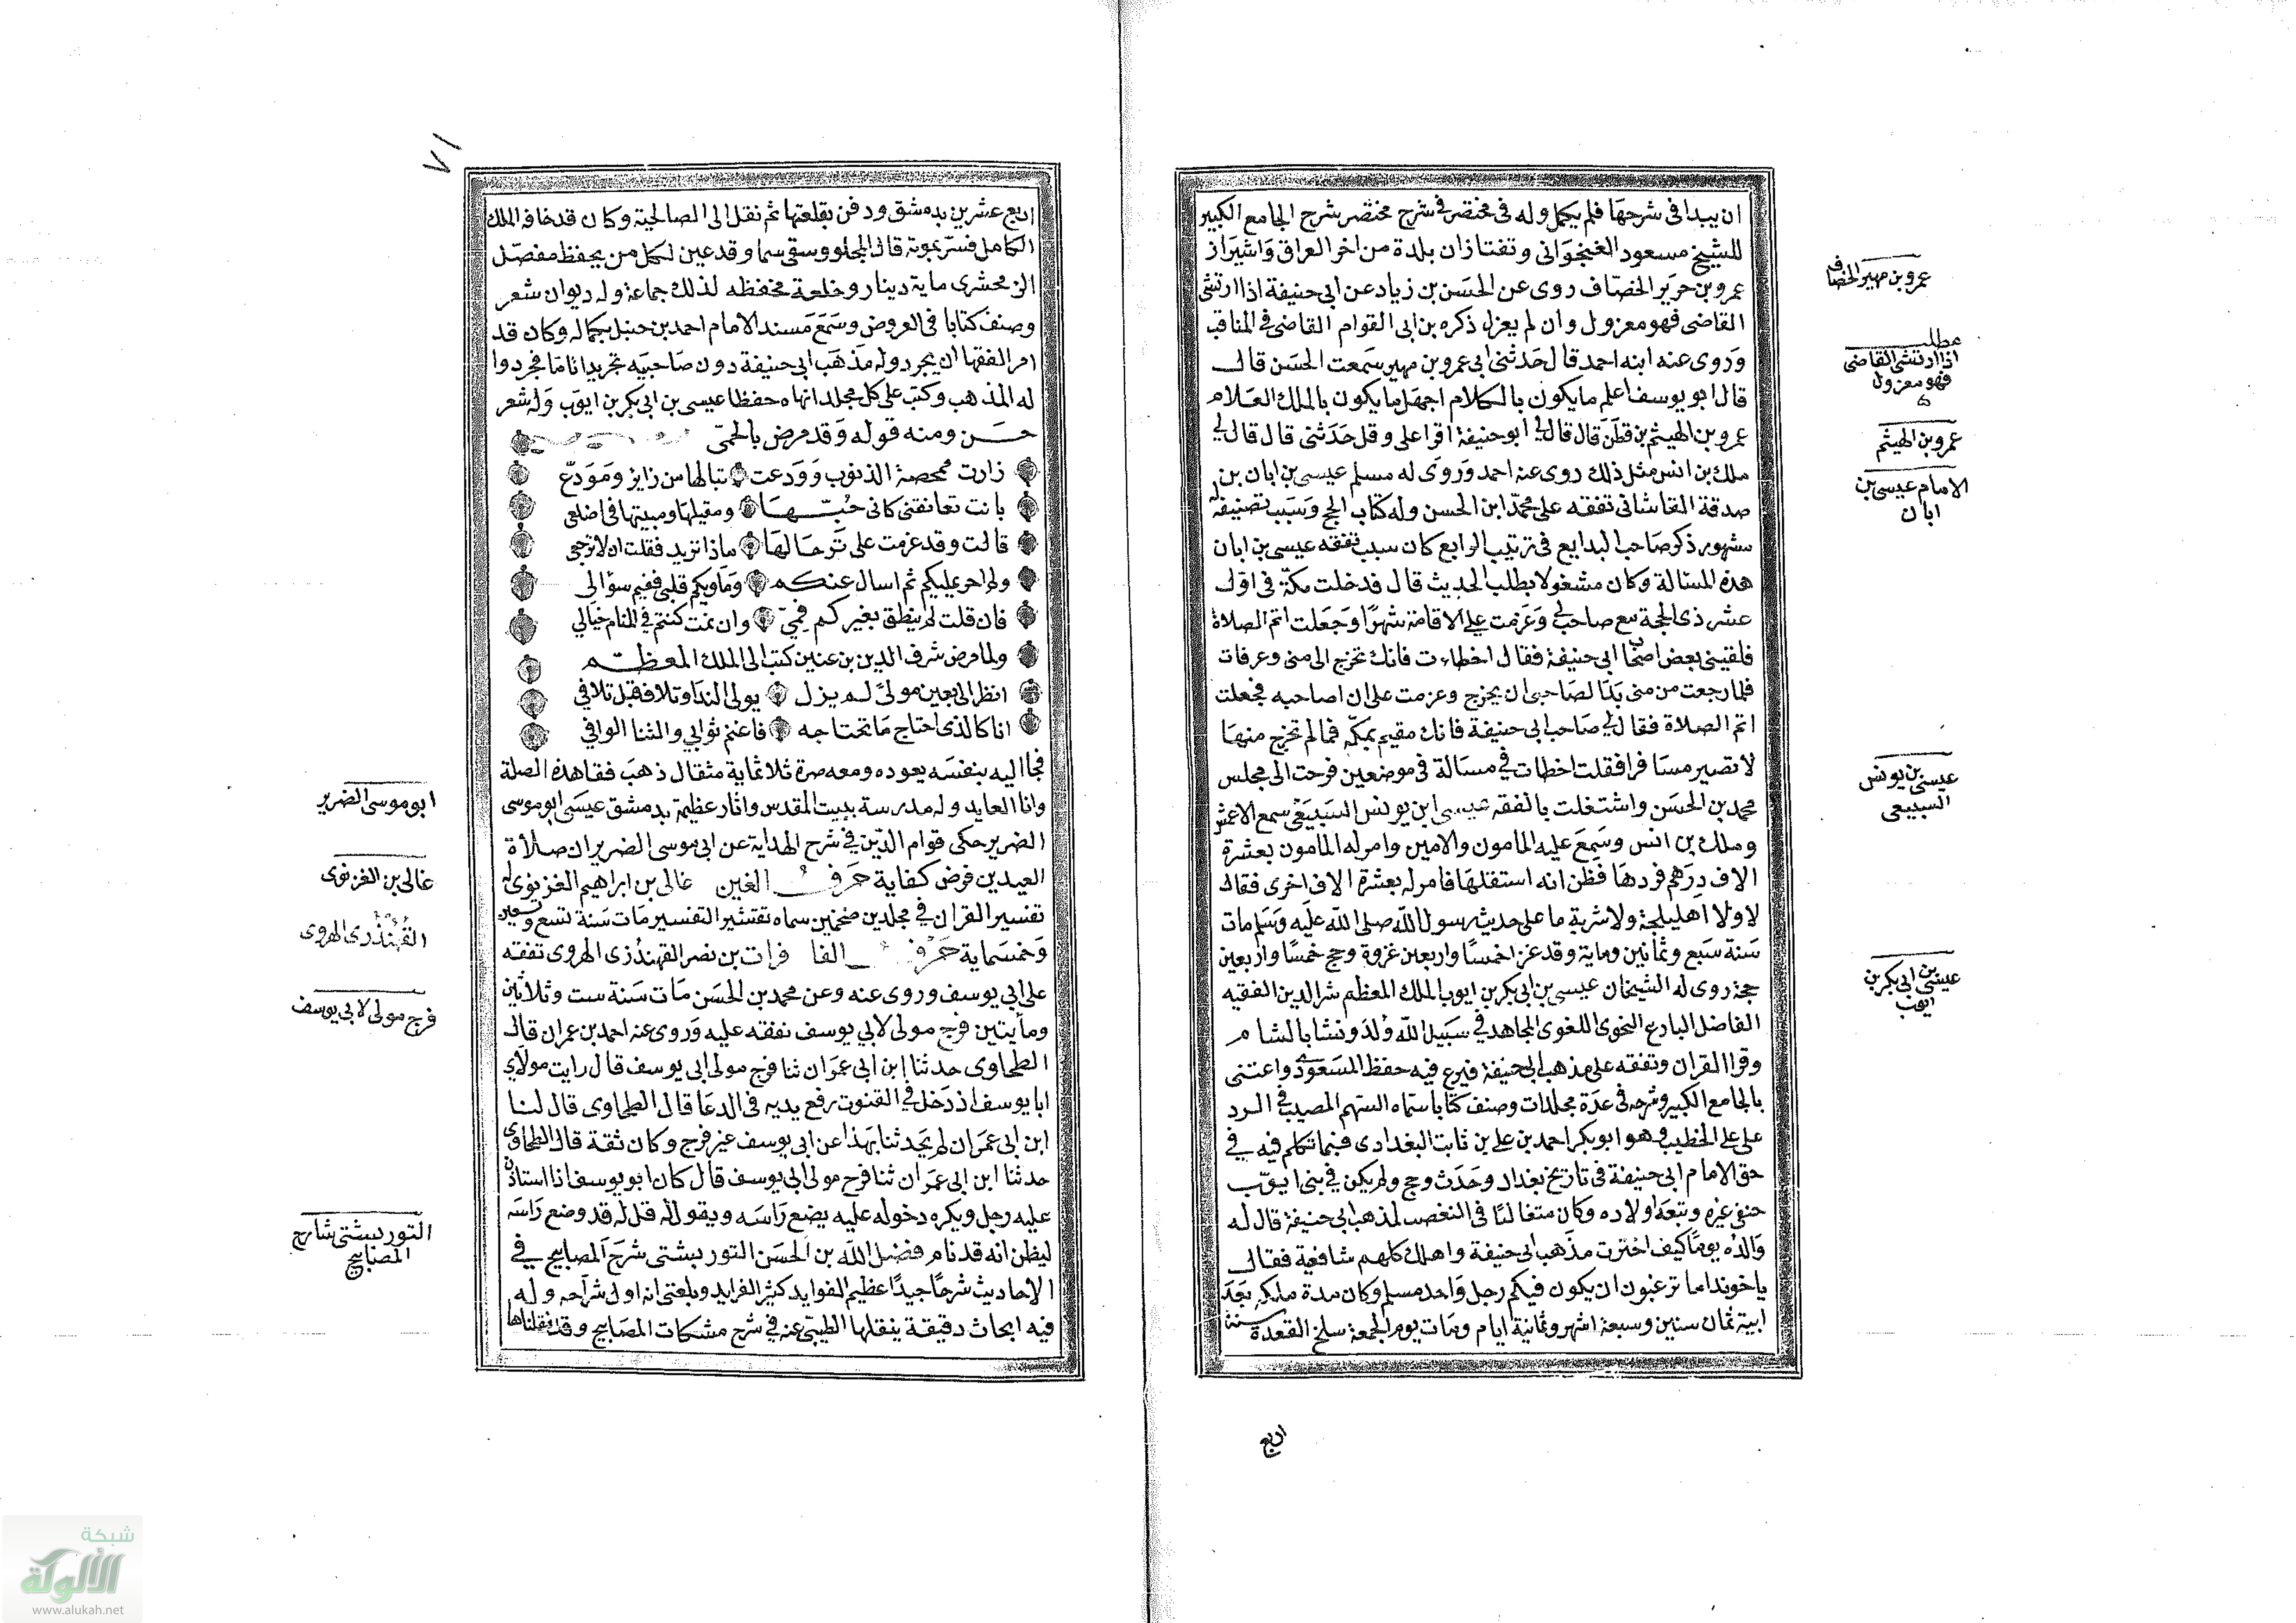 ان يبدا فى شرحها فلم يكمل وله فى مختصر فى شرح مختصر شرح الجامع الكبير
للشيخ مسعود الغنجوانى وتفتازان بلدة من اخر العراق واشيراز
عمرو بن حرير الخصاف روى عن الحسن بن زياد عن ابى حنيفة اذا ارتشى
القاضى فهو معزول وان لم يعزل ذكره بن ابى القوام القاضى فى المناقب
وروى عنه ابنه احمد قال حدثنى ابى عمرو بن مهير سمعت الحسن قال
قال ابو يوسف اعلم ما يكون بالكلام اجهل ما يكون بالملك العلام
عمرو بن الهيثم بن قطن قال قال لى ابو حنيفة اقرا على وقل حدثنى قال قال لى
ملك بن انس مثل ذلك روى عنه احمد وروى له مسلم عيسى بن ابان بن
صدقة القاشانى تفقه على محمد ابن الحسن وله كتاب الحج وسبب تصنيفه له
مشهور ذكر صاحب البدايع فى ترتيب الرابع كان سبب تفقه عيسى بن ابان
هذه المسالة وكان مشغولا بطلب الحديث قال فدخلت مكة فى اول
عشر ذى الحجة مع صاحب لى وعزمت على الاقامة شهرا وجعلت اتم الصلاة
فلقينى بعض اصحاب ابى حنيفة فقال اخطاءت فانك تخرج الى منى وعرفات
فلما رجعت من منى بدا لصاحبى ان يخرج وعزمت على ان اصاحبه فجعلت
اتم الصلاة فقال لى صاحب ابى حنيفة فانك مقيم بمكة فما لم تخرج منها
لا تصير مسافرا فقلت اخطات فى مسالة فى موضعين فرحت الى مجلس
محمد بن الحسن واشتغلت بالفقه عيسى ابن يونس السبيعى سمع الاعمش
وملك بن انس وسمع عليه المامون والامين وامر له المامون بعشرة
الاف درهم فردها فظن انه استقلها فامر له بعشرة الاف اخرى فقال
لا ولا اهليلجة ولا شربة ما على حديث رسول الله صلى الله عليه وسلم مات
سنة سبع وثمانين وماية وقد غزا خمسا واربعين غزوة وحج خمسا واربعين
حجة روى له الشيخان عيسى بن ابى بكر بن ايوب الملك المعظم شر الدين الفقيه
الفاضل البارع النحوى اللغوى المجاهد فى سبيل الله ولد ونشا بالشام
وقرا القران وتفقه على مذهب ابى حنيفة فبرع فيه حفظ المسعودى واعتنى
بالجامع الكبير وشرحه فى عدة مجلدات وصنف كتابا سماه السهم المصيب فى الرد
على على الخطيب وهو ابو بكر احمد بن على بن ثابت البغدادى فيما تكلم فيه فى
حق الامام ابى حنيفة فى تاريخ بغداد وحدث وحج ولم يكن فى بنى ايوب
حنفى غيره وتبعه اولاده وكان متغاليا فى التعصب لمذهب ابى حنيفة قال له
والده يوما كيف اخترت مذهب ابى حنيفة واهلك كلهم شافعية فقال
يا خوند اما ترغبون ان يكون فيكم رجل واحد مسلم وكان مدة ملكه بعد
ابيه ثمان سنين وسبعة اشهر وثمانية ايام ومات يوم الجمعة سلخ القعدة سنة
اربع
عمرو بن مهير الخصاف
مطلب
اذا ارتشى القاضى
فهو معزول
عمرو بن الهيثم
الامام عيسى بن
ابان
عيسى بن يونس
السبيعى
عيسى بن ابى بكر بن
ايوب
٧١
اربع عشرين بدمشق ودفن بقلعتها ثم نقل الى الصالحية وكان قد خافه الملك
الكامل فسر بموته قال المجلو وسقى سما وقد عين لكل من يحفظ مفصل
الزمحشرى ماية دينار وخلعة محفظه لذلك جماعة وله ديوان شعر
وصنف كتابا فى العروض وسمع مسند الامام احمد بن حنبل بكماله وكان قد
امر الفقها ان يجردوله مذهب ابى حنيفة دون صاحبيه تجريدا تاما فجردوا
له المذهب وكتب على كل مجلد انهاه حفظا عيسى بن ابى بكر بن ايوب وله شعر
حسن ومنه قوله وقد مرض بالحمى
زارت ممحصة الذنوب وودعت تبا لها من زاير ومودع
باتت تعانقنى كانى حبها ومقيلها ومبيتها فى اضلعى
قالت وقد عزمت على ترحالها ماذا تريد فقلت ان لا ترجعى
ولم احر عليكم ثم اسال عنكم وماويكم قلبى ففيم سؤالى
فان قلت لم ينطق بغيركم فمى وان نمت كنتم فى المنام خيالي
ولما مرض شرف الدين بن عنين كتب الى الملك المعظم
انظر الى بعين مولى لم يزل يولى الندا وتلاف قبل تلافي
انا كالذى احتاج ما تحتاجه فاغنم ثوابي والثنا الوافي
فجا اليه بنفسه يعوده ومعه صرة ثلاثماية مثقال ذهب فقا هذه الصلة
وانا العايد وله مدرسة ببيت المقدس واثار عظيمة بدمشق عيسى ابو موسى
الضرير حكى قوام الدين فى شرح الهداية عن ابى موسى الضرير ان صلاة
العيدين فرض كفاية حرف الغين غالى بن ابراهيم الغزنوى له
تفسير القران فى مجلدين ضخمين سماه تقشير التفسير مات سنة تسع وتسعين
وخمسماية حرف الفا فرات بن نصر القهندزى الهروى تفقه
على ابى يوسف وروى عنه وعن محمد بن الحسن مات سنة ست وثلاثين
ومأيتين فرج مولى لابي يوسف تفقه عليه وروى عنه احمد بن عمران قال
الطحاوى حدثنا ابن ابى عمران ثنا فرج مولى ابى يوسف قال رايت مولاي
ابا يوسف اذ دخل فى القنوت رفع يديه فى الدعا قال الطحاوى قال لنا
ابن ابى عمران لم يحدثنا بهذا عن ابى يوسف غير فرج وكان ثقة قال الطحاوى
حدثنا ابن ابى عمران ثنا فرج مولى ابى يوسف قال كان ابو يوسف اذا استاذن
عليه رجل ويكره دخوله عليه يضع راسه ويقول له قل له قد وضع راسه
ليظن انه قد نام فضل الله بن الحسن التوربشتى شرح المصابيح فى
الاحاديث شرحا جيدا عظيم الفوايد كثير الفرايد وبلغنى انه اول شراحه وله
فيه ابحاث دقيقة ينقلها الطيبى عنه فى شرح مشكات المصابيح وقد نقلناها
ابو موسى الضرير
غالى بن الغزنوى
القهندزى الهروى
فرج مولى لابى يوسف
التوربشتى شارح
المصابيح
شبكة
الألوكة
www.alukah.net